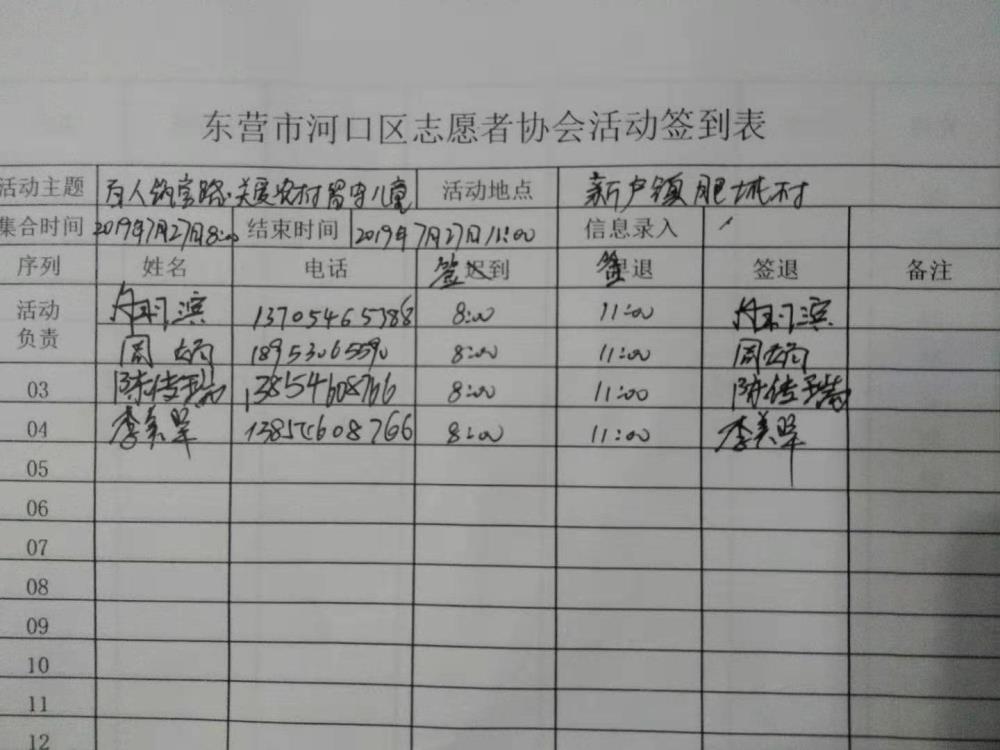 东营市河口区志愿者协会活动签到表
活动主题 百人筑宫路·关爱农村留守儿童 活动地点 新户镇肥城村
集合时间 2019年7月27日8:00 结束时间 2019年7月27日11:00 信息录入
序列 姓名 电话 签到 签退 签退 备注
活动负责 滨 13705465788 8:00 11:00 滨
周 18953065590 8:00 11:00 周
03 陈传瑞 13854608766 8:00 11:00 陈传瑞
04 李美翠 13854608766 8:00 11:00 李美翠
05
06
07
08
09
10
11
12